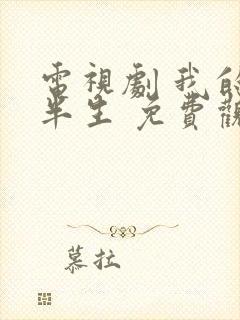 電視劇我的
半生 免費觀
慕拉